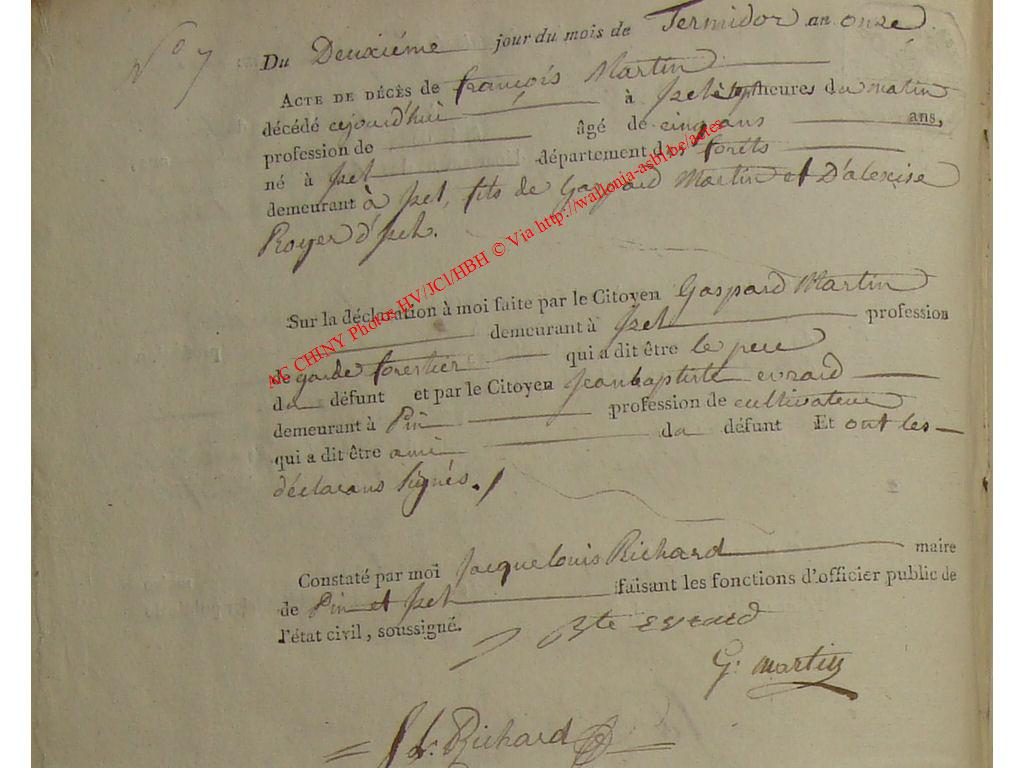 N° 7
Du Deuxiéme jour du mois de Termidor an onze
ACTE DE DÉCÈS de françois Martin
décédé cejourd'hui à heures du matin
profession de âgé de cinq ans ans,
né à Izel département des forêts
demeurant à Izel, fils de Gaspard Martin et D'alexise
Royer d'Izel.
Sur la déclaration à moi faite par le Citoyen Gaspard Martin
demeurant à Izel profession
de garde forestier qui a dit être le pere
du défunt et par le Citoyen Jeanbaptiste evrard
demeurant à Pin profession de cultivateur
qui a dit être ami du défunt Et ont les
déclarans signés.
Constaté par moi Jacquelouis Richard maire
de Pin et Izel faisant les fonctions d'officier public de
l'état civil, soussigné.
Bte evrard
G. martin
J L. Richard
AC CHINY Photos HV/JCl/HBH © Via http://wallonia-asbl.be/actes